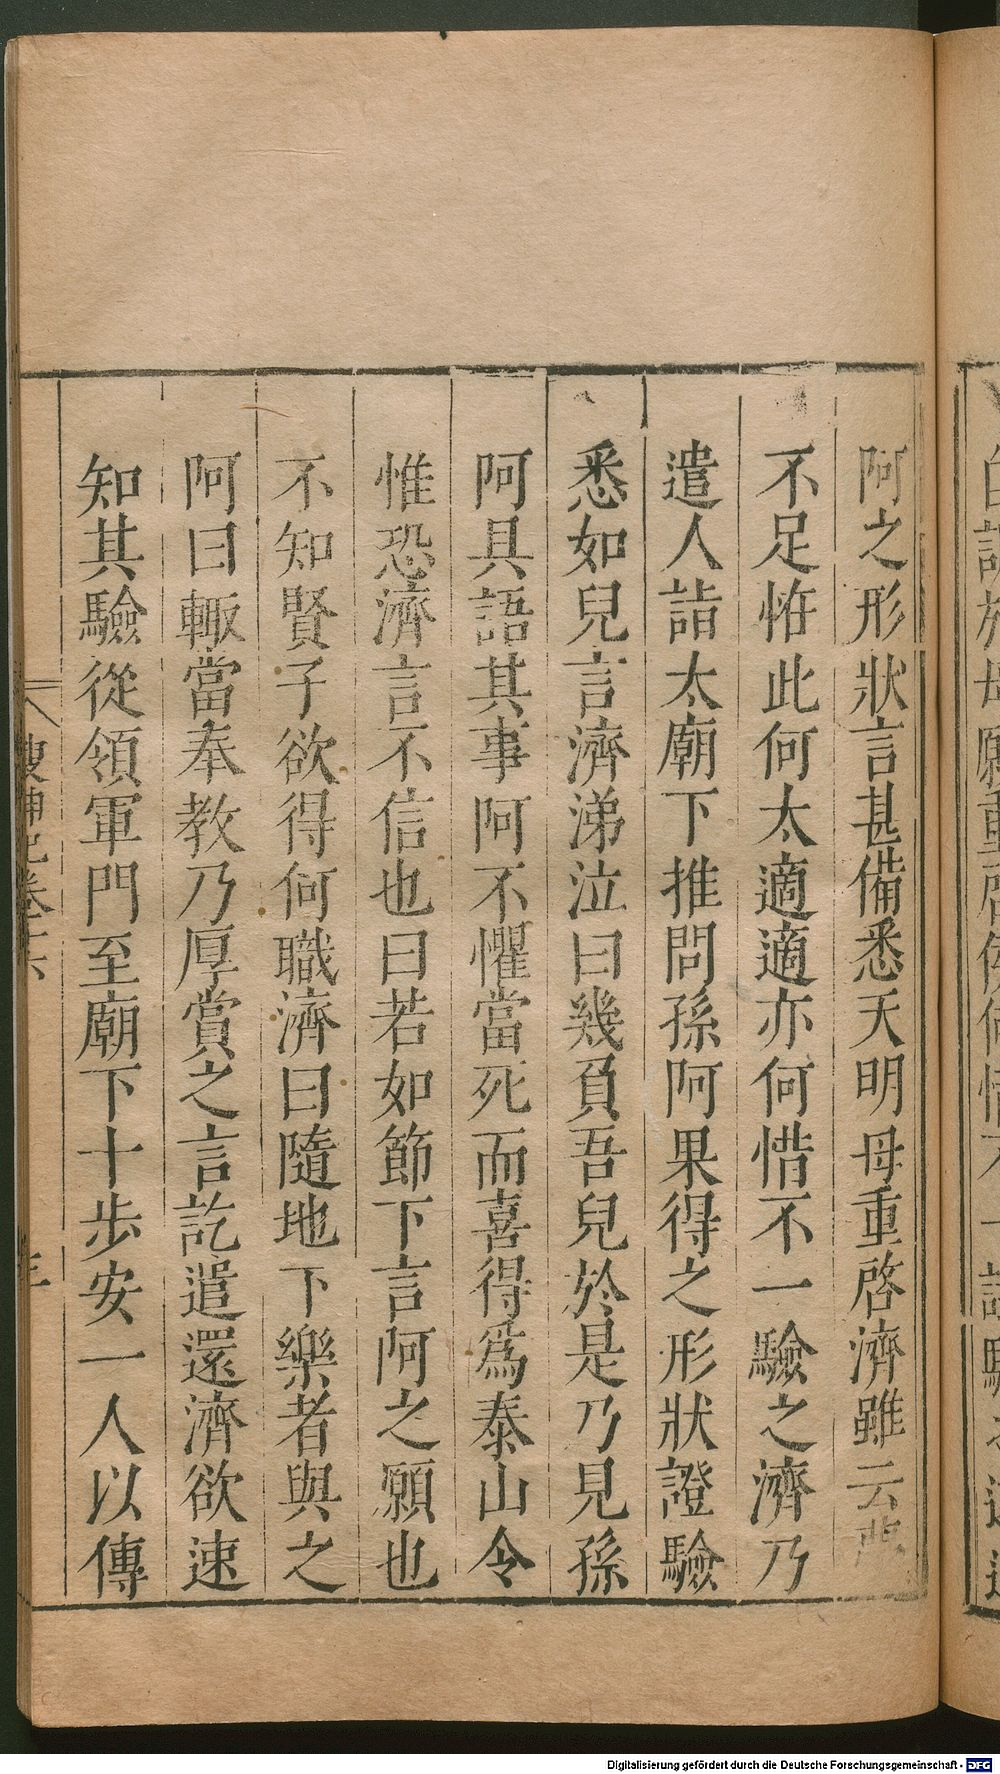 阿之形狀言甚備悉天明母重啓濟雖云夢
不足恠此何太適適亦何惜不一驗之濟乃
遣人詣太廟下推問孫阿果得之形狀證驗
悉如兒言濟涕泣曰幾負吾兒於是乃見孫
阿具語其事阿不懼當死而喜得爲泰山令
惟恐濟言不信也曰若如節下言阿之願也
不知賢子欲得何職濟曰隨地下樂者與之
阿曰輙當奉教乃厚賞之言訖遣還濟欲速
知其驗從領軍門至廟下十步安一人以傳
搜神記卷十六
Digitalisierung gefördert durch die Deutsche Forschungsgemeinschaft - DFG